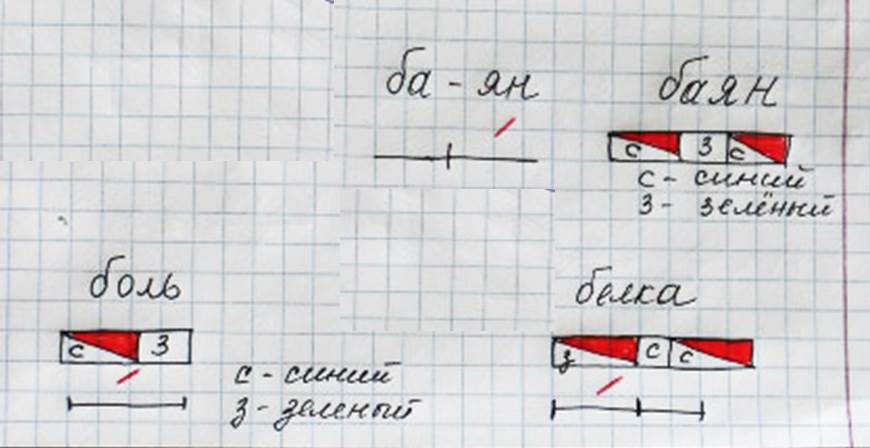 ба - ян
баян
с з с
с - синий
з - зелёный
боль
с з
с - синий
з - зеленый
белка
з с с